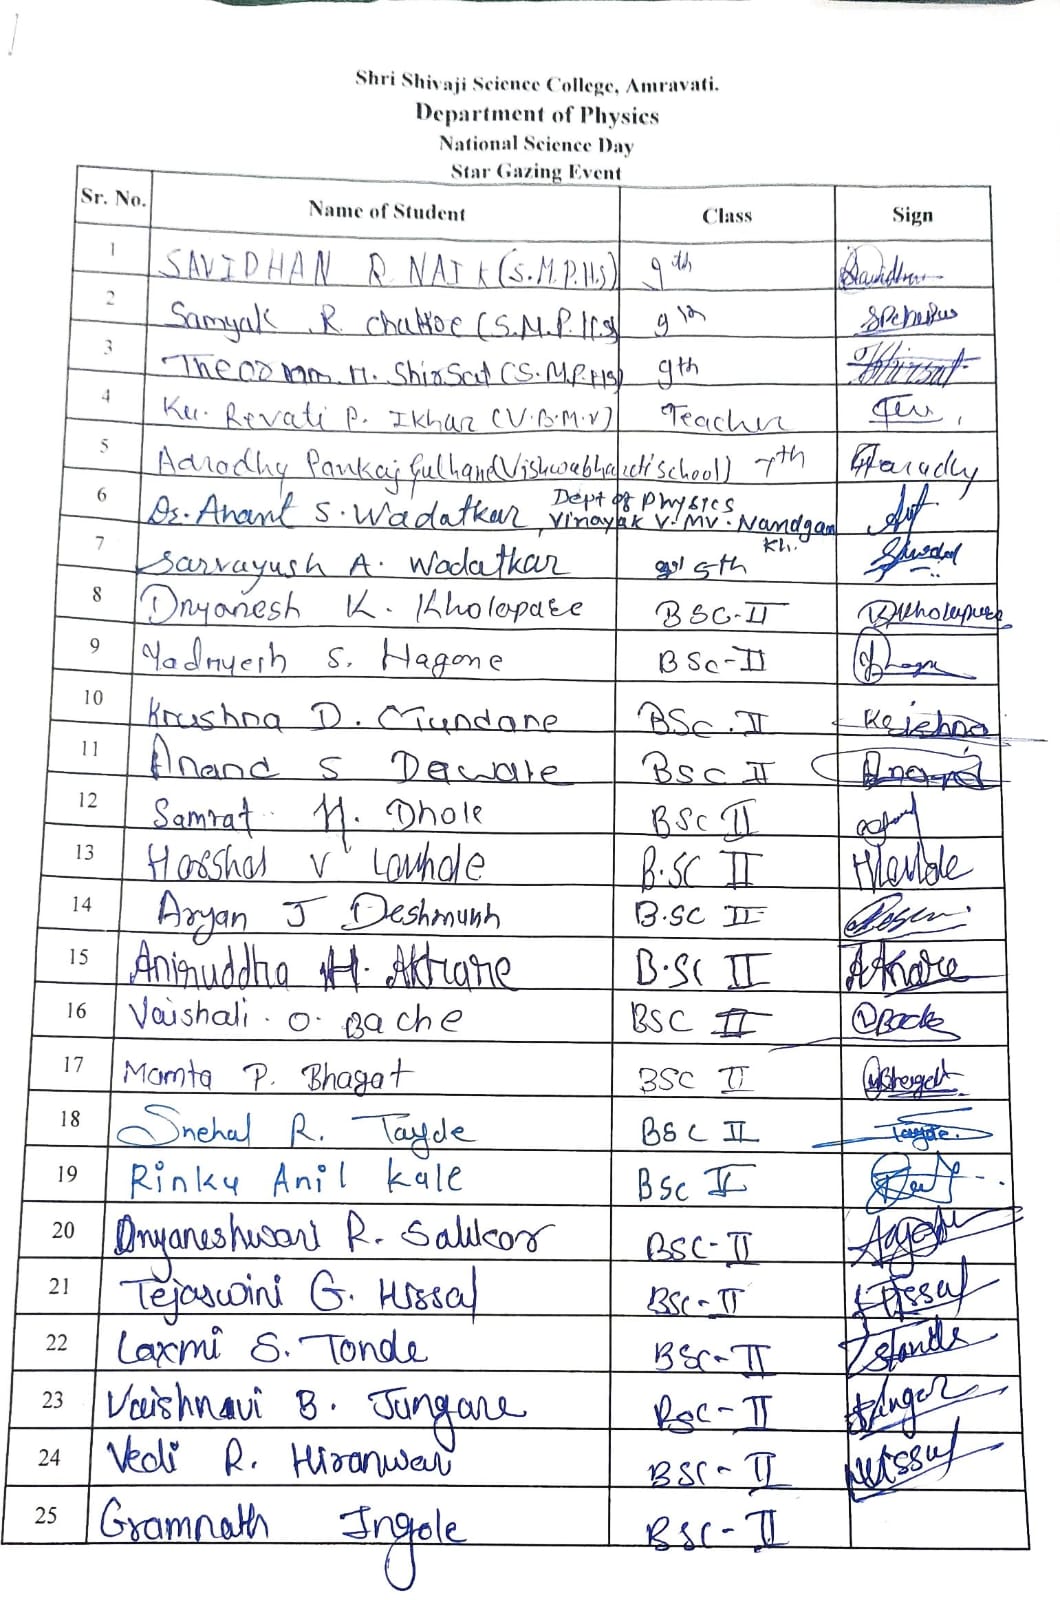 Shri Shivaji Science College, Amravati.
Department of Physics
National Science Day
Star Gazing Event
Sr. No. Name of Student Class Sign
1 SAVIDHAN R. NAIK (S.M.P.H.S) 9th
2 Samyak R. (S.M.P.H.S) 9th
3 H. Shirsat (S.M.P.HS) 9th Shirsat
4 Ku. Revati P. Ikhar (V.B.M.V) Teacher
5 Aaradhy Pankaj Gulhand (Vishwabharti school) 7th Aaradhy
6 Dr. Anant S. Wadatkar, Dept of Physics
Vinayak V. MV. Nandgan
Kh.
7 Sarvayush A. Wadatkar 5th
8 Dnyanesh K. Kholapure BSC-II DKholapure
9 Yadnyesh S. Hagone BSc-II
10 Krushna D. Mundane BSc. II Krishna
11 Anand S Deware BSC II Anand
12 Samrat H. Dhole BSc II
13 Harshal V Lavhale B.SC II
14 Aryan J Deshmukh B.SC II
15 Aniruddha H. Akhare B.SC II AAkhare
16 Vaishali. O. Bache BSC II
17 Mamta P. Bhagat BSC II Bhagat
18 Snehal R. Tayde BSC II Tayde.
19 Rinku Anil Kale BSc II
20 Dnyaneshwari R. BSC-II
21 Tejaswini G. Hissal BSC-II Hissal
22 Laxmi S. Tonde BSC-II Tonde
23 Vaishnavi B. Jungare BSC-II
24 Vedi R. Hiranwar BSC-II
25 Gramnath Ingole BSC-II